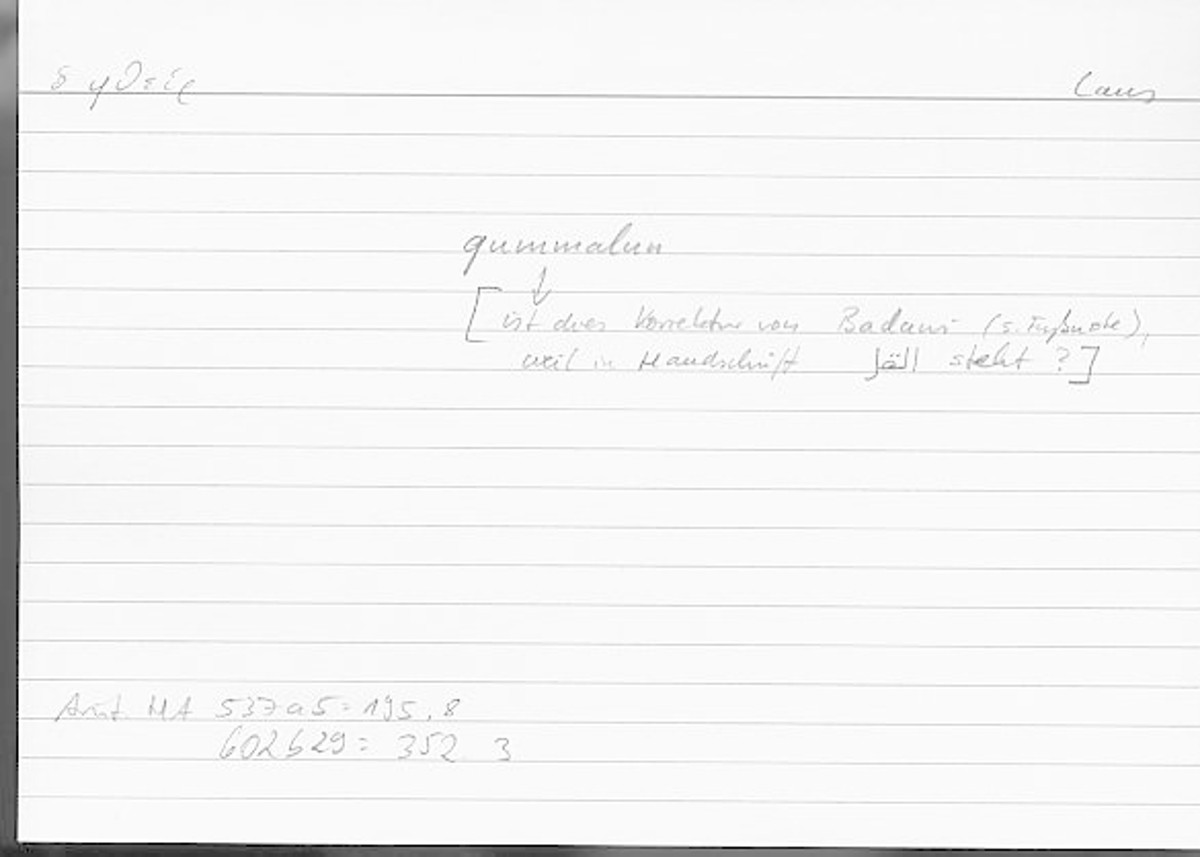 ὁ φθείρ Laus
qummalun
↓
[ist dies Korrektur von Badawi (s. Fußnote),
weil in Handschrift القل steht?]
Arist. HA 537a5 = 195,8
602b29 = 352 3